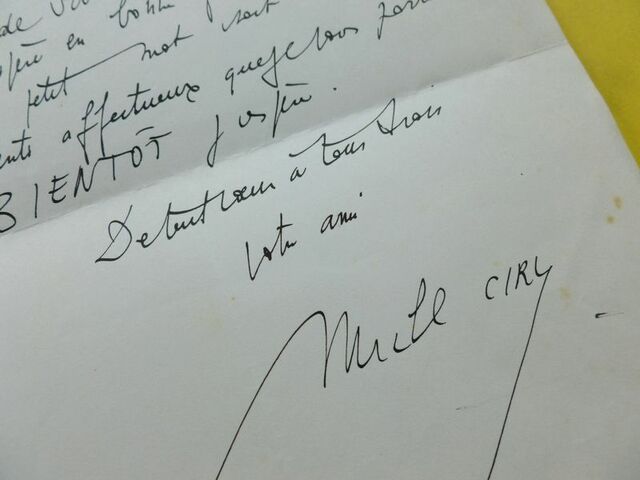 de
en bonne
petit mot sont
affectueux que je vous
BIENTÔT j'espère.
De tout cœur à tous trois
votre ami
Michel CIRY